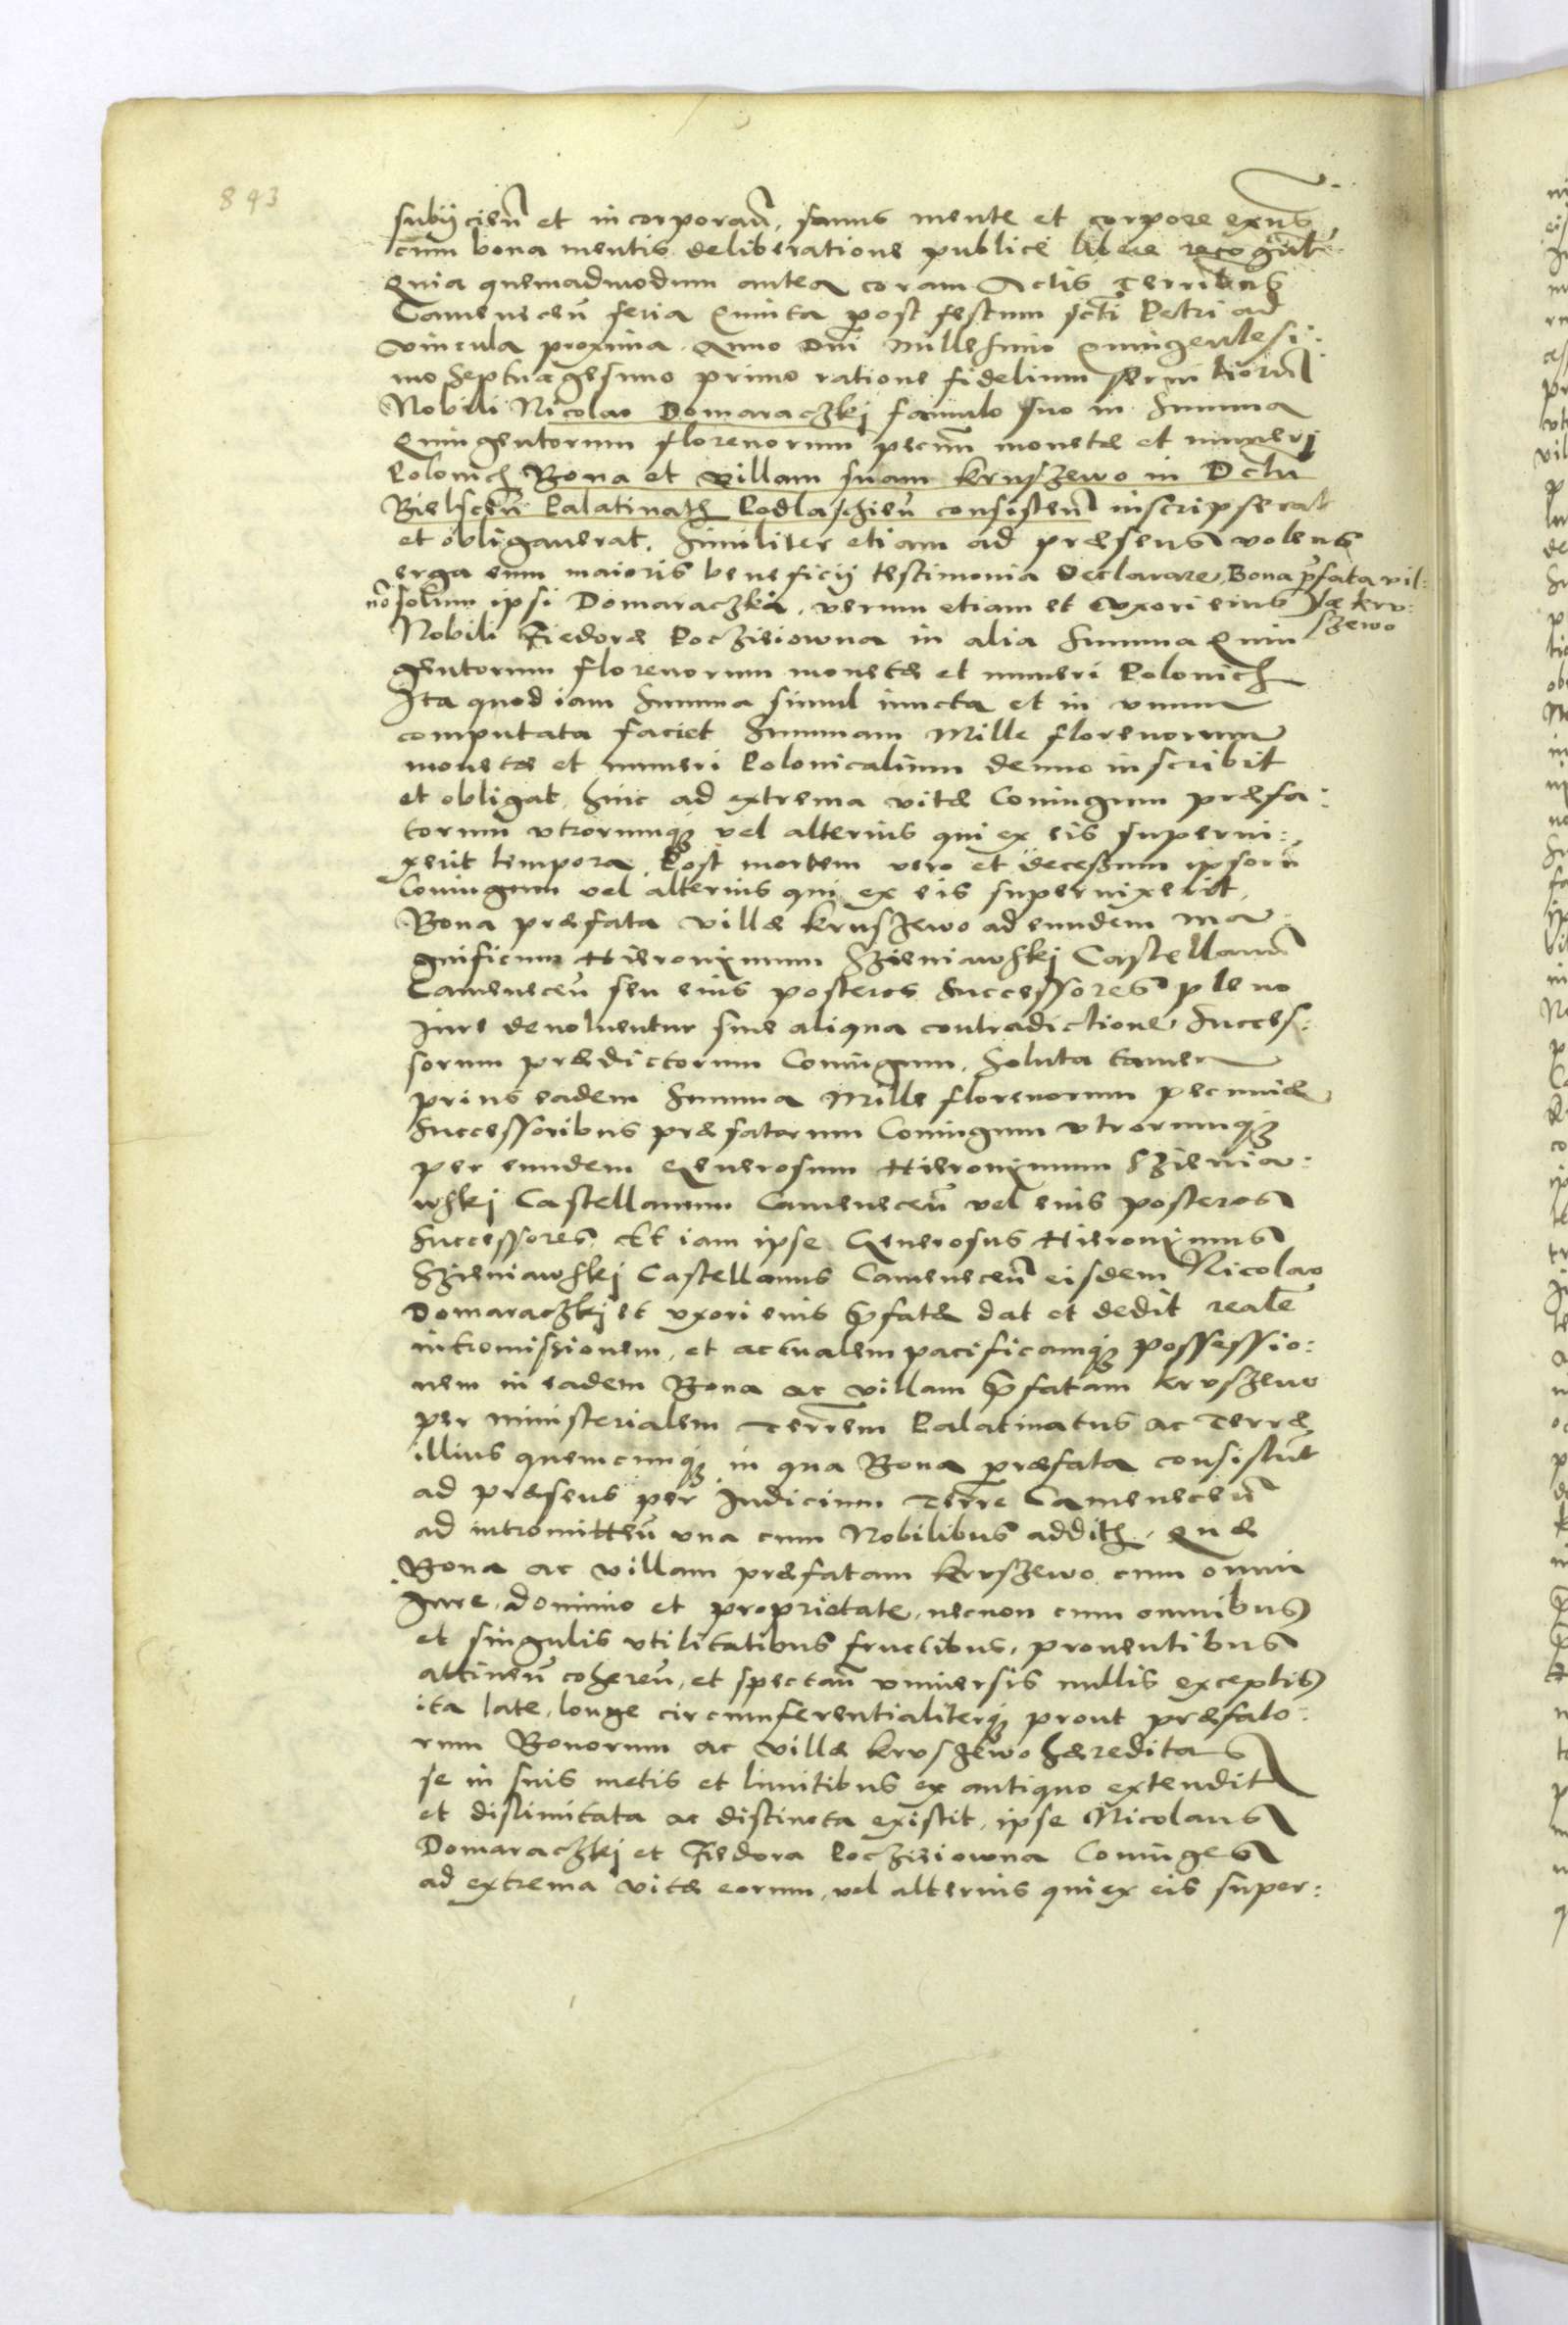 893
subiicieñ et incorporañ, sanus mente et corpore exñs
cum bona mentis deliberatione publice libere recognȃt
Quia quemadmodum antea coram Actis Terribus
Cameneceñ feria Quinta post festum scti Petri ad
vincula proxima Anno Dni Millesimo Quingentesi:
mo Septuagesimo primo ratione fidelium servitiorum
Nobili Nicolao Domaraczkj famulo suo in Summa
Quingentorum florenorum pecun monetæ et numeri
Polonich Bona et villam suam Kruszewo in Dctu
Bielsceñ Palatinath Podlaschieñ consisteñ inscripserat
et obligauerat, Similiter etiam ad præsens volens
erga eum maioris beneficij testimonia declarare, Bona pfata vil:
nō solum ipsi Domaraczki, verum etiam et Vxori eius læ kru:
szewo
Nobili Fiedoræ Poczieiowna in alia Summa Quin
gentorum florenorum monetæ et numeri Polonich
Ita quod iam Summa simul iuncta et in vnum
computata faciet Summam Mille florenorum
monetæ et numeri Polonicalium denuo inscribit
et obligat, hinc ad extrema vitæ Coniugum præfa:
torum vtrorumq vel alterius qui ex eis superui:
xerit tempora, Post mortem vero et decessum ipsorū
Coniugum vel alterius qui ex eis superuixerit,
Bona præfata villæ Kruszewo ad eundem ma
gnificum Hieronimum Szieniawskj Castellanum
Cameneceñ seu eius posteros Successores pleno
Jure deuoluentur sine aliqua contradictione Succes:
sorum prædictorum Coniugum, Soluta tamen
prius eadem Summa Mille florenorum pecuniæ
Successoribus præfatorum Coniugum vtrorumq
per eundem Generosum Hieronimum Szienia:
wskj Castellanum Cameneceñ vel eius posteros
Successores Et iam ipse Generosus Hieronimus
Szieniawskj Castellanus Cameneceñ eisdem Nicolao
Domaraczkj et vxori eius pfatæ dat et dedit realē
intromissionem, et actualem pacificamq possessio:
nem in eadem Bona ac villam pfatam kruszewo
per ministerialem Terrem Palatinatus ac Terræ
illius quemcunq in qua Bona præfata consistūt
ad præsens per Judicium Terre Cameneceñ
ad intromitteñ vna cum Nobilibus addith, Quæ
Bona ac villam præfatam kruszewo cum omni
Jure, dominio et proprietate, necnon cum omnibus
et singulis vtilitatibus fructibus, prouentibus
attineñ cohereñ, et spectañ vniuersis nullis exceptis
ita late, longe circumferentialiterq prout præfato:
rum Bonorum ac villæ kruszewo hæreditas
se in suis metis et limitibus ex antiquo extendit
et dislimitata ac distincta existit, ipse Nicolaus
Domaraczkj et Fiedora Poczieiowna Coniuges
ad extrema vitæ eorum, vel alterius qui ex eis super: